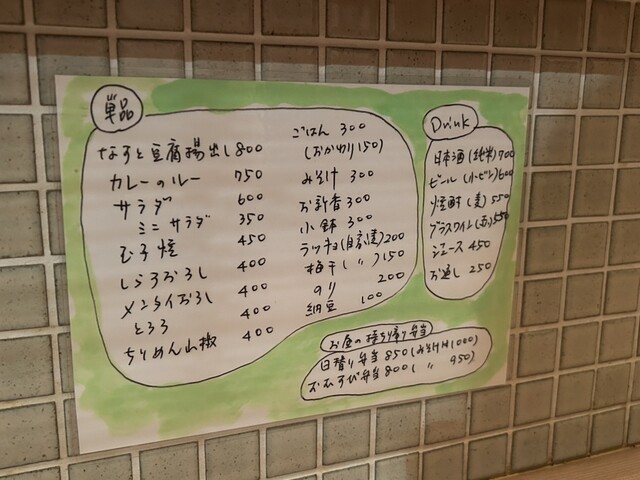 単品
なすと豆腐揚出し 800
カレーのルー 750
サラダ 600
ミニサラダ 350
玉子焼 450
しらすおろし 400
メンタイおろし 400
とろろ 400
ちりめん山椒 400
ごはん 300
(おかわり 150)
みそ汁 300
お新香 300
小鉢 300
ラッキョ(自家漬) 200
梅干し( 〃 ) 150
のり 200
納豆 100
Drink
日本酒(純米) 700
ビール(小ビン) 600
焼酎(麦) 550
グラスワイン(赤) 550
ジュース 450
お通し 250
お昼の持ち帰り弁当
日替り弁当 850(みそ汁付1000)
おむすび弁当 800( 〃 950)